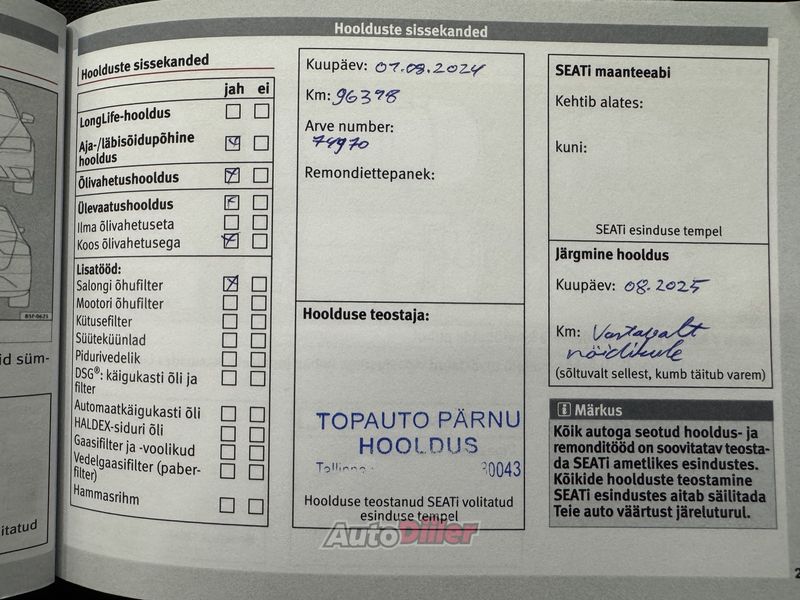 Hoolduste sissekanded
Hoolduste sissekanded
jah ei
LongLife-hooldus
Aja-/läbisõidupõhine
hooldus
Õlivahetushooldus
Ülevaatushooldus
Ilma õlivahetuseta
Koos õlivahetusega
Lisatööd:
Salongi õhufilter
Mootori õhufilter
Kütusefilter
Süüteküünlad
Pidurivedelik
DSG®: käigukasti õli ja
filter
Automaatkäigukasti õli
HALDEX-siduri õli
Gaasifilter ja -voolikud
Vedelgaasifilter (paber-
filter)
Hammasrihm
Kuupäev: 07.08.2024
Km: 96398
Arve number:
74970
Remondiettepanek:
Hoolduse teostaja:
TOPAUTO PÄRNU
HOOLDUS
Tallinna 80043
Hoolduse teostanud SEATi volitatud
esinduse tempel
SEATi maanteeabi
Kehtib alates:
kuni:
SEATi esinduse tempel
Järgmine hooldus
Kuupäev: 08.2025
Km: Vastavalt
näidikule
(sõltuvalt sellest, kumb täitub varem)
i Märkus
Kõik autoga seotud hooldus- ja
remonditööd on soovitatav teosta-
da SEATi ametlikes esindustes.
Kõikide hoolduste teostamine
SEATi esindustes aitab säilitada
Teie auto väärtust järeluturul.
id süm-
itatud
B5F-0625
AutoDiiler
2